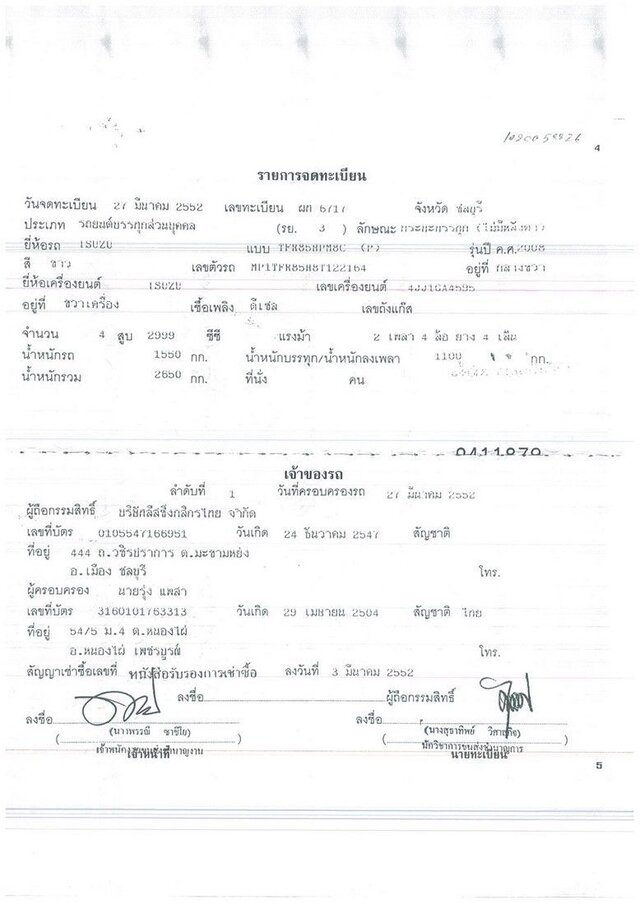 4
รายการจดทะเบียน
วันจดทะเบียน 27 มีนาคม 2552 เลขทะเบียน ผก 6717 จังหวัด ชลบุรี
ประเภท รถยนต์บรรทุกส่วนบุคคล (รย. 3 ) ลักษณะ กระบะบรรทุก (ไม่มีหลังคา)
ยี่ห้อรถ ISUZU แบบ TFR85HPM8C (P) รุ่นปี ค.ศ.2008
สี ขาว เลขตัวรถ MP1TFR85H8T122164 อยู่ที่ กลางขวา
ยี่ห้อเครื่องยนต์ ISUZU เลขเครื่องยนต์ 4JJ1GA4595
อยู่ที่ ขวาเครื่อง เชื้อเพลิง ดีเซล เลขถังแก๊ส
จำนวน 4 สูบ 2999 ซีซี แรงม้า 2 เพลา 4 ล้อ ยาง 4 เส้น
น้ำหนักรถ 1550 กก. น้ำหนักบรรทุก/น้ำหนักลงเพลา 1100 กก.
น้ำหนักรวม 2650 กก. ที่นั่ง คน
0411979
เจ้าของรถ
ลำดับที่ 1 วันที่ครอบครองรถ 27 มีนาคม 2552
ผู้ถือกรรมสิทธิ์ บริษัทลีสซิ่งกสิกรไทย จำกัด
เลขที่บัตร 0105547166951 วันเกิด 24 ธันวาคม 2547 สัญชาติ
ที่อยู่ 444 ถ.วชิรปราการ ต.มะขามหย่ง
อ.เมือง ชลบุรี โทร.
ผู้ครอบครอง นายรุ่ง แพสา
เลขที่บัตร 3160101763313 วันเกิด 29 เมษายน 2504 สัญชาติ ไทย
ที่อยู่ 54/5 ม.4 ต.หนองไผ่
อ.หนองไผ่ เพชรบูรณ์ โทร.
สัญญาเช่าซื้อเลขที่ หนังสือรับรองการเช่าซื้อ ลงวันที่ 3 มีนาคม 2552
ลงชื่อ ผู้ถือกรรมสิทธิ์
ลงชื่อ ลงชื่อ
(นางสุธาทิพย์
เจ้าหน้าที่ นักวิชาการขนส่งชำนาญการ
นายทะเบียน
5